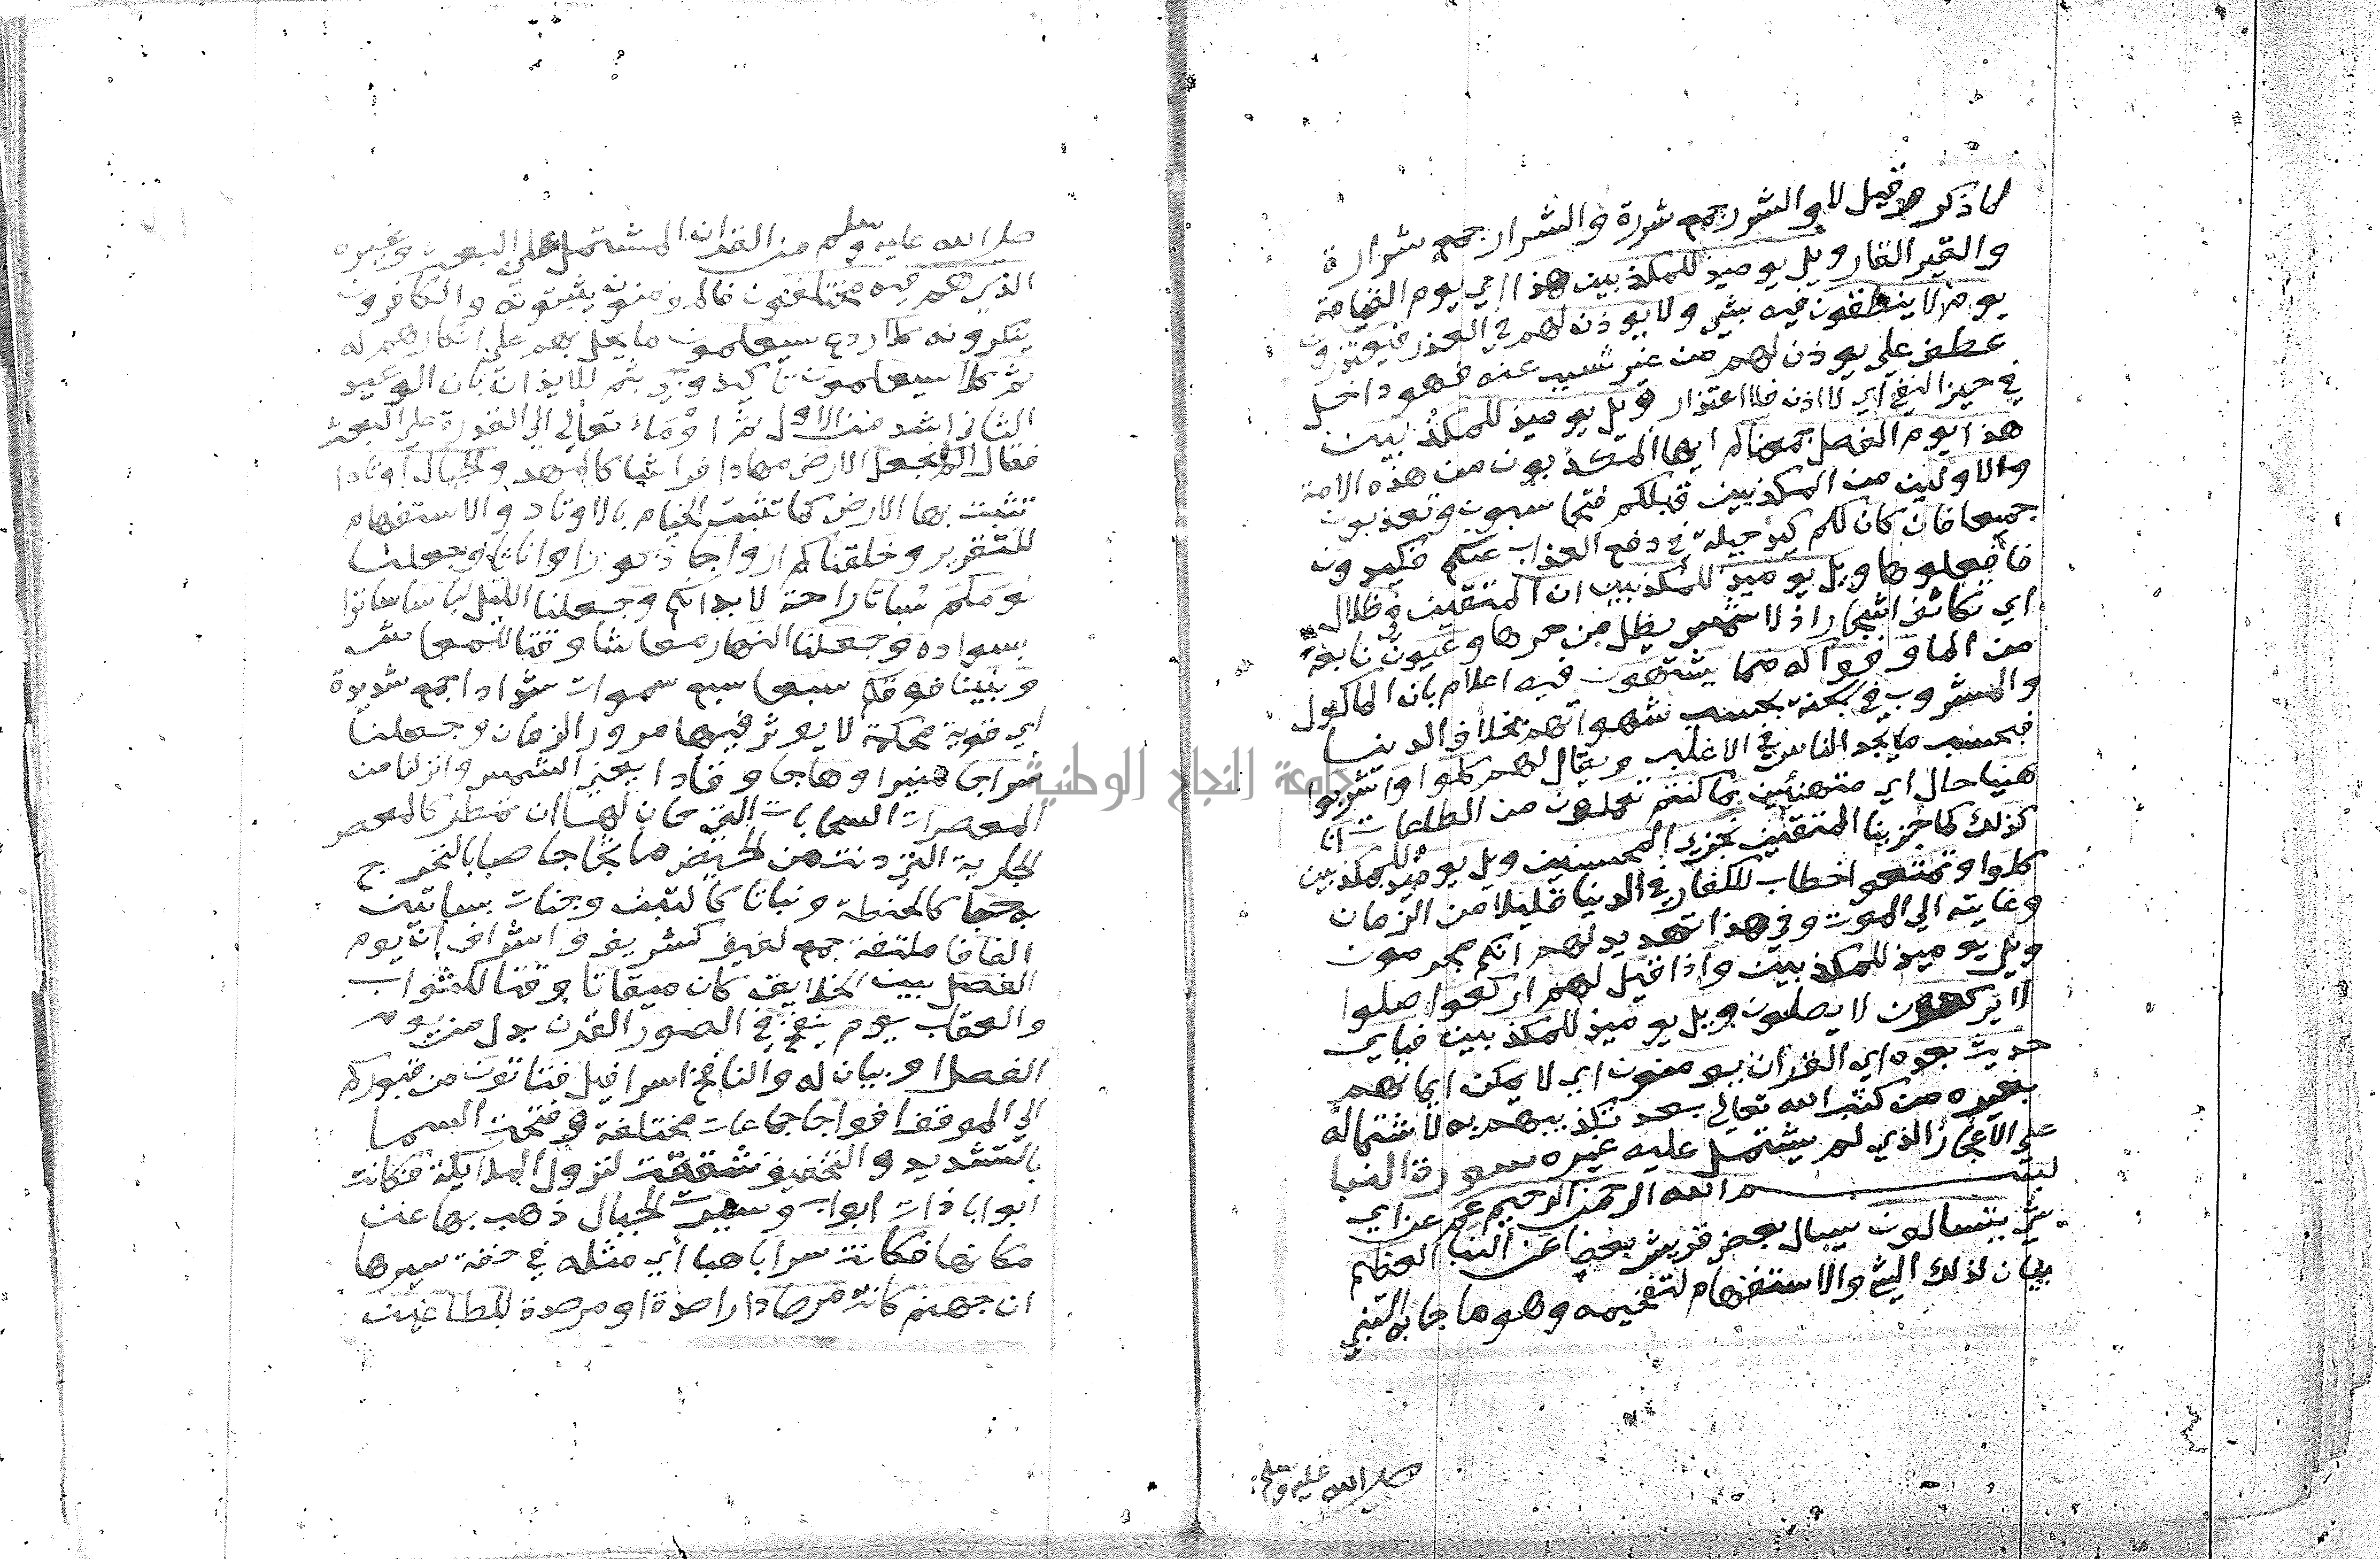 لما ذكر وقيل لا والشرر جمع شررة والشرار جمع شرارة
والقير القار ويل يوميذ للمكذبين هذا اي يوم القيامة
يوم لا ينطقون فيه بشي ولا يوذن لهم في العذر فيعتذرون
عطف علي يوذن لهم من غير تسبب عنه فهو داخل
في حيز النفي اي لا اذن فلا اعتذار ويل يوميذ للمكذبين
هذا يوم الفصل جمعناكم ايها المكذبون من هذه الامة
والاولين من المكذبين قبلكم فتحاسبون وتعذبون
جميعا فان كان لكم كيد حيلة في دفع العذاب عنكم فكيدون
فافعلوها ويل يوميذ للمكذبين ان المتقين في ظلال
اي تكاثف اشجار اذ لا شمس يظل من حرها وعيون نابعة
من الما وفواكه مما يشتهون فيه اعلام بان الماكول
والمشروب في الجنة بحسب شهواتهم بخلاف الدنيا
فبحسب ما يجد الناس في الاغلب ويقال لهم كلوا واشربوا
هنيا حال اي متهنئين بما كنتم تعملون من الطاعات انا
كذلك كما جزينا المتقين نجزي المحسنين ويل يوميذ للمكذبين
كلوا وتمتعوا خطاب للكفار في الدنيا قليلا من الزمان
وغايته الي الموت وفي هذا تهديد لهم انكم مجرمون
ويل يوميذ للمكذبين واذا قيل لهم اركعوا صلوا
لا يركعون لا يصلون ويل يوميذ للمكذبين فباي
حديث بعده اي القران يومنون اي لا يمكن ايمانهم
بغيره من كتب الله تعالي بعد تكذيبهم به لاشتماله
علي الاعجاز الذي لم يشتمل عليه غيره سورة النبا
بسم الله الرحمن الرحيم عم عن اي
شي يتسالون يسال بعض قريش بعضا عن النبا العظيم
بيان لذلك الشي والاستفهام لتفخيمه وهو ما جا به النبي
صلي الله عليه وسلم
صلي الله عليه وسلم من القران المشتمل علي البعث وغيره
الذي هم فيه مختلفون فالمومنون يثبتونه والكافرون
ينكرونه كلا ردع سيعلمون ما يحل بهم علي انكارهم له
ثم كلا سيعلمون تاكيد وجي بثم للايذان بان الوعيد
الثاني اشد من الاول ثم اومأ تعالي الي القدرة علي البعث
فقال الم نجعل الارض مهادا فراشا كالمهد والجبال اوتادا
تثبت بها الارض كما تثبت الخيام بالاوتاد والاستفهام
للتقرير وخلقناكم ازواجا ذكورا واناثا وجعلنا
نومكم سباتا راحة لابدانكم وجعلنا الليل لباسا ساترا
بسواده وجعلنا النهار معاشا وقتا للمعاش
وبنينا فوقكم سبعا سبع سموات شدادا جمع شديدة
اي قوية محكمة لا يوثر فيها مرور الزمان وجعلنا
سراجا منيرا وهاجا وقادا يعني الشمس وانزلنا من
المعصرات السحابات التي حان لها ان تمطر كالمعصر
الجارية التي دنت من الحيض ما ثجاجا صبابا لنخرج
به حبا كالحنطة ونباتا كالتبن وجنات بساتين
الفافا ملتفة جمع لفيف كشريف واشراف ان يوم
الفصل بين الخلايق كان ميقاتا وقتا للثواب
والعقاب يوم ينفخ في الصور القرن بدل من يوم
الفصل او بيان له والنافخ اسرافيل فتاتون من قبوركم
الي الموقف افواجا جماعات مختلفة وفتحت السما
بالتشديد والتخفيف شققت لنزول الملايكة فكانت
ابوابا ذات ابواب وسيرت الجبال ذهب بها عن
مكانها فكانت سرابا هبا اي مثله في خفة سيرها
ان جهنم كانت مرصادا راصدة او مرصدة للطاغين
جامعة النجاح الوطنية